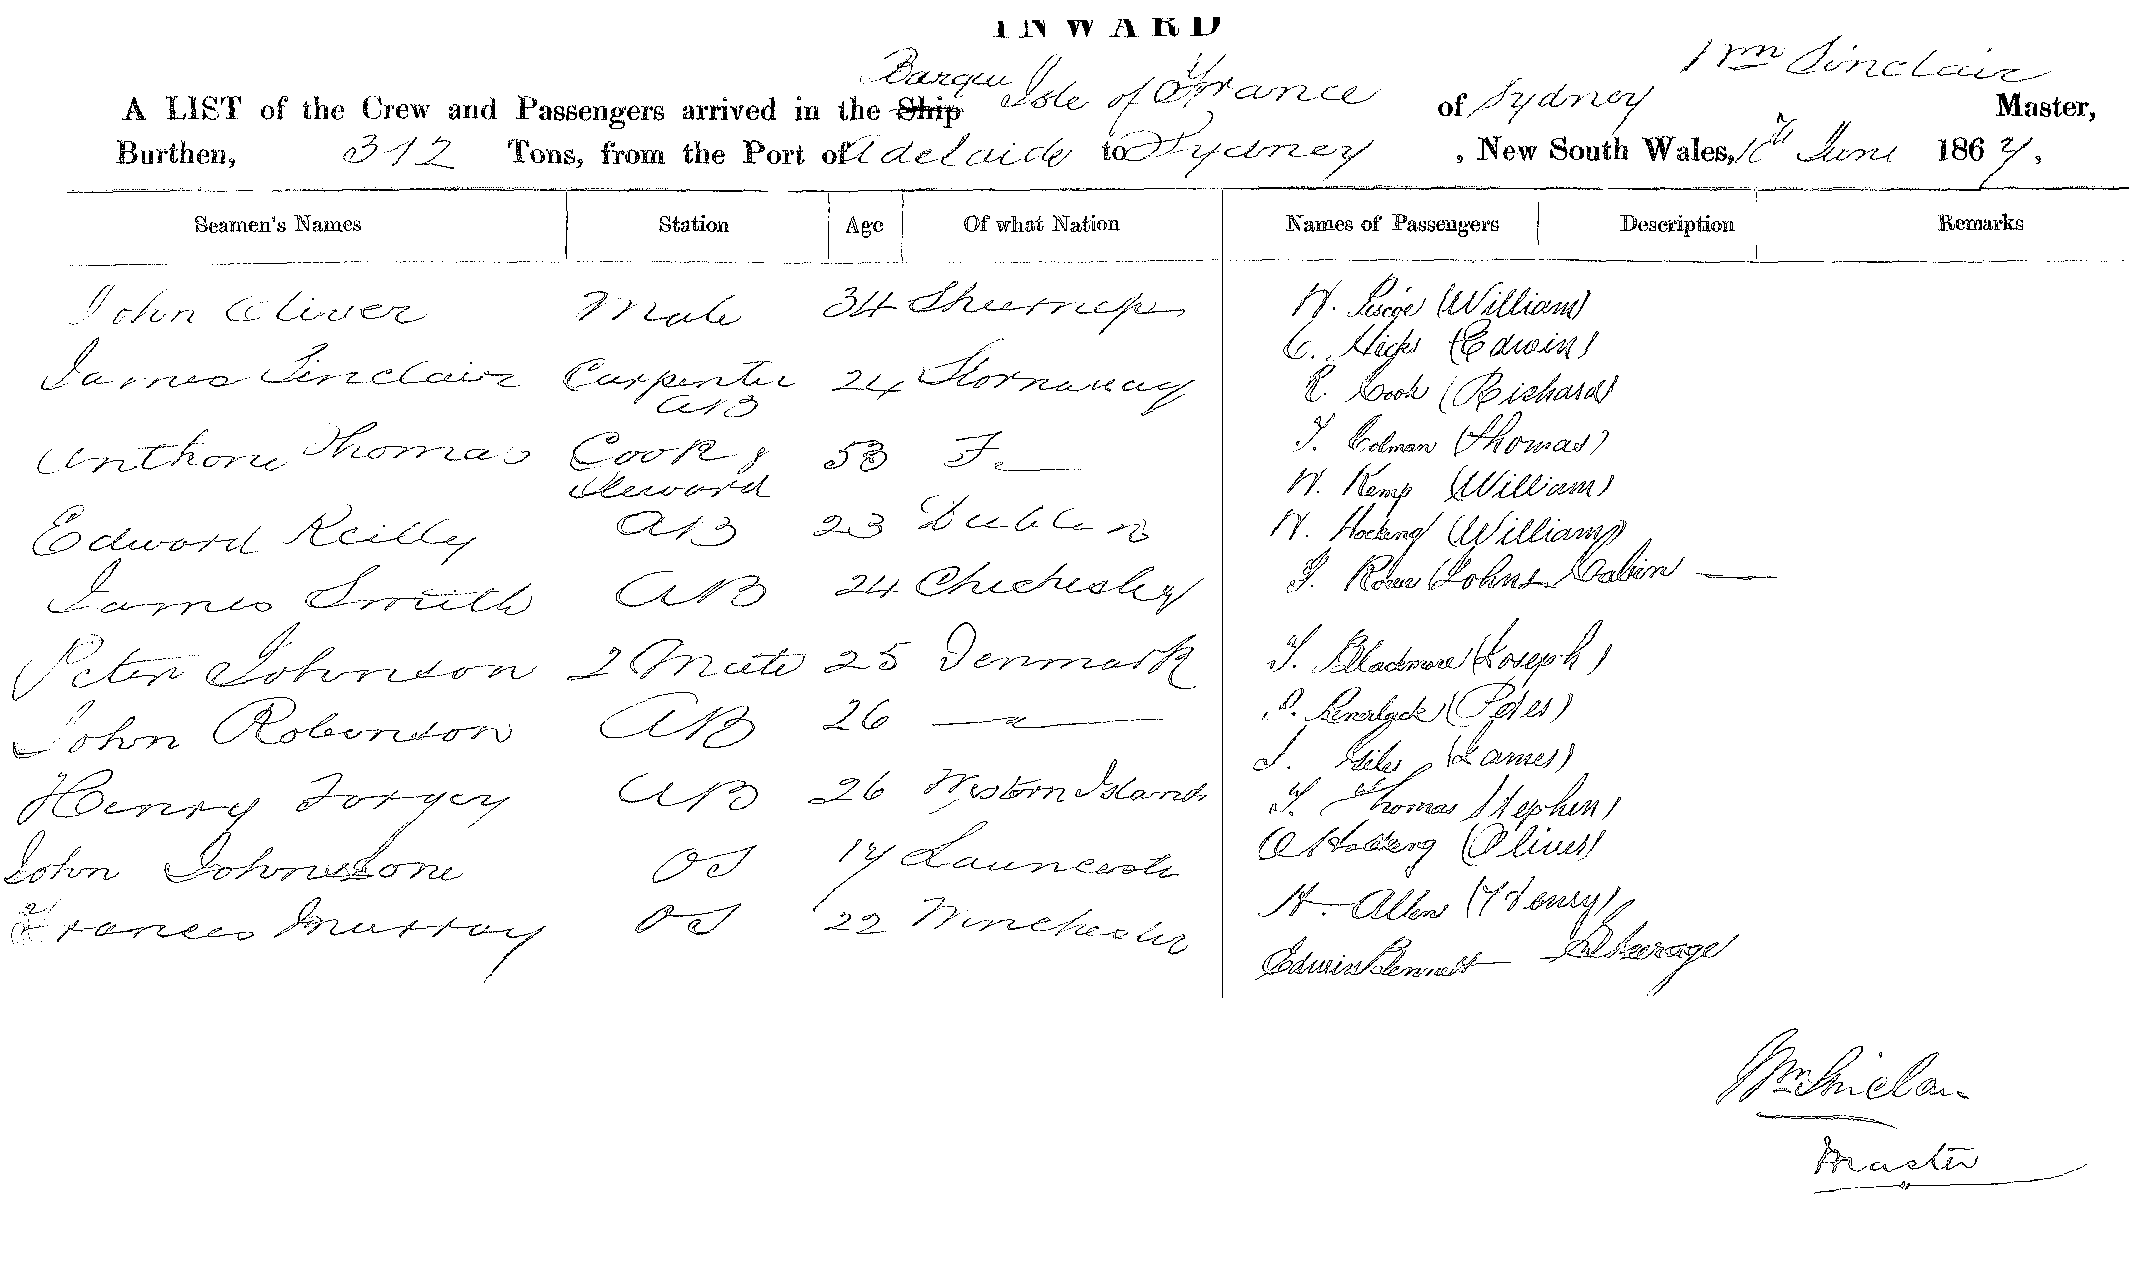 INWARD
A LIST of the Crew and Passengers arrived in the Ship Barque Isle of France of Sydney Wm Sinclair Master,
Burthen, 312 Tons, from the Port of Adelaide to Sydney, New South Wales, June 1867,
Seamen's Names Station Age Of what Nation Names of Passengers Description Remarks
John Oliver Mate 34 Sheerness W. (William)
James Sinclair Carpenter AB 24 Stornaway E. Hicks (Edwin)
R. Cook (Richard)
Anthony Thomas Cook & Steward 53 F. T. Edman (Thomas)
W. Kemp (William)
Edward Reilly AB 23 Dublin W. Hocking (William)
James Smith AB 24 Chichester J. Rowe (Johns Cabin
Peter Johnson 2 Mate 25 Denmark J. Blackmore (Joseph)
John Robinson AB 26 — " — P. (Peter)
J. Giles (James)
Henry Forgey AB 26 Western Islands T. Thomas Stephen)
John Johnstone OS 17 Launceston O (Oliver)
Frances Murray OS 22 Winchester H. Allen (Henry)
Edwin Bennett Steerage
Wm Sinclair
Master